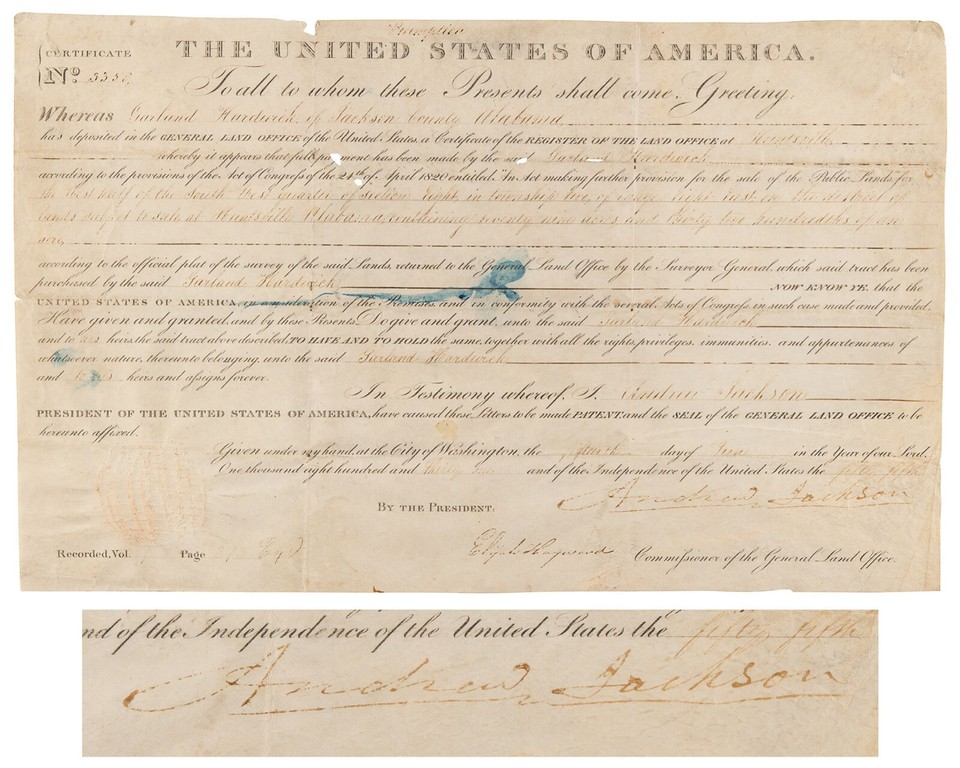 Preemption
CERTIFICATE
No. 3358
THE UNITED STATES OF AMERICA.
To all to whom these Presents shall come, Greeting.
Whereas Garland Hardwick, of Jackson County Alabama
has deposited in the GENERAL LAND OFFICE of the United States, a Certificate of the REGISTER OF THE LAND OFFICE at Huntsville
whereby it appears that full payment has been made by the said Garland Hardwick
according to the provisions of the Act of Congress of the 24th of April 1820 entitled "An Act making further provision for the sale of the Public Lands" for
the West half of the South West quarter of section eight in township of range eight East in the district of
lands subject to sale at Huntsville Alabama, containing seventy nine acres and thirty two hundredths of an
acre
according to the official plat of the survey of the said Lands, returned to the General Land Office by the Surveyor General, which said tract has been
purchased by the said Garland Hardwick NOW KNOW YE, that the
UNITED STATES OF AMERICA, in consideration of the Premises, and in conformity with the several Acts of Congress, in such case made and provided,
Have given and granted, and by these Presents, Do give and grant, unto the said Garland Hardwick
and to his heirs, the said tract above described; TO HAVE AND TO HOLD the same, together with all the rights, privileges, immunities, and appurtenances of
whatsoever nature, thereunto belonging, unto the said Garland Hardwick
and to his heirs and assigns forever.
In Testimony whereof, I, Andrew Jackson
PRESIDENT OF THE UNITED STATES OF AMERICA, have caused these Letters to be made PATENT, and the SEAL of the GENERAL LAND OFFICE to be
hereunto affixed.
Given under my hand, at the City of Washington, the day of June in the Year of our Lord,
One thousand eight hundred and thirty one and of the Independence of the United States the fifty fifth
Andrew Jackson
BY THE PRESIDENT:
Elijah Hayward Commissioner of the General Land Office.
Recorded, Vol. Page
nd of the Independence of the United States the fifty fifth
Andrew Jackson